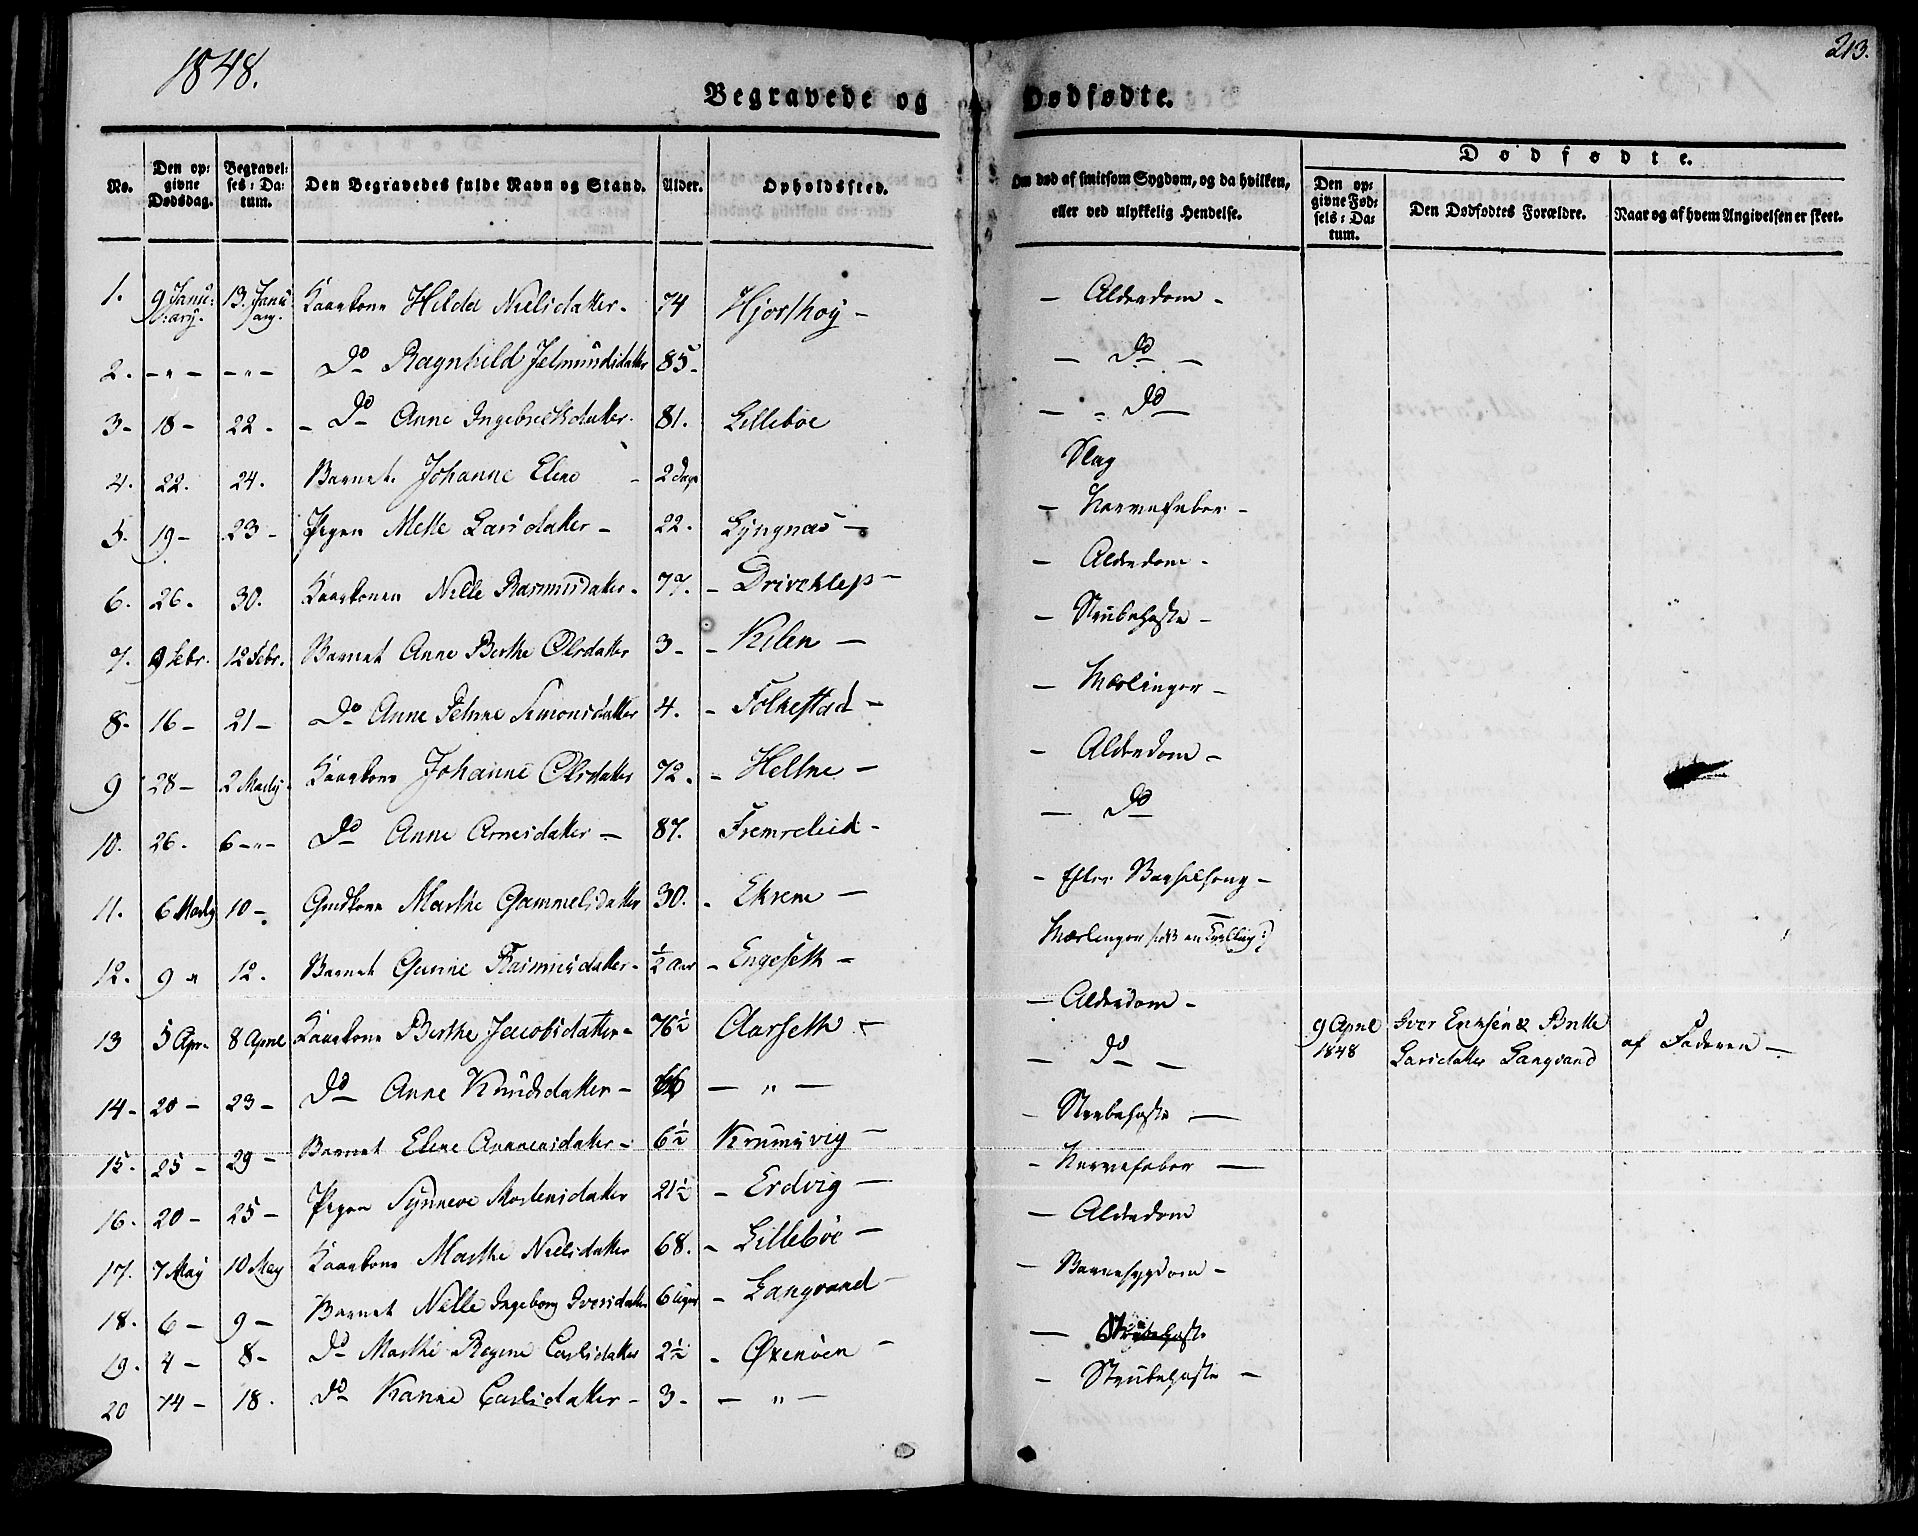 1848.
213.
Begravede og Dødfødte.
No.
Den op-
givne
Dødsdag.
Begravel-
ses-Da-
tum.
Den Begravedes fulde Navn og Stand.
Alder.
Opholdssted.
Om død af smitsom Sygdom, og da hvilken,
eller ved ulykkelig Hendelse.
Dødfødte.
Den op-
givne Fød-
sels-Da-
tum.
Den Dødfødtes Forældre.
Naar og af hvem Angivelsen er skeet.
1. 9 Janu-ary. 13. January. Kaarkone Hilda Nielsdatter. 74 Hjorthoy - Alderdom -
2. -"- -"- Do Ragnhild Jetmundsdatter 85 - Do -
3- 18- 22- - Do Anne Ingebretsdatter. 81. Lillebøe - " Do -
4. 22. 24. Barnet Johanne Elene - 2 Dage Slag
5. 19- 23- Pigen Mette Larsdatter - 22. Lyngnæs - - Nervefeber -
6. 26. 30. Kaarkonen Nille Rasmusdatter - - Driveklep - - Alderdom -
7. 9 Febr. 12 Febr. Barnet Anne Berthe Olsdatter 3- - Kilen - - Strubehoste -
8- 16- 21- Do Anne Simonsdatter 4. - Folkestad - - Mæslinger -
9 28- 2 Marty Kaarkone Johanne Olsdatter 72. - Heltne - - Alderdom -
10. 26. 6-"- Do Anne Arnesdatter - 87. Fremreleid - - Do
11. 6 Marty 10- Gmdkone Marthe Gammelsdatter 30. - Ekrene - - Efter Barselseng -
12. 9 " 12. Barnet Gurine Rasmusdatter - ½ Aar - Engeseth - Mæslinger (var en Tvilling)
13 5 Apr. 8 April Kaarkone Berthe Jacobsdatter - 76½ Aarseth - - Alderdom -
9 April 1848 Iver Enksen & Brithe Larsdatter Langvand af Faderen -
14- 20- 23- Do Anne Knudsdatter - 66 - " - - Do -
15. 25- 29- Barnet Elene - 6½ Krumsvig - - Strubehoste -
16. 20- 25- Pigen Synneve Mortensdatter 21½ - Erdvig - - Nervefeber -
17. 7 May 10 May Kaarkone Marthe Nielsdatter 68. - Lillebøe - - Alderdom
18. 6- 9- Barnet Nille Ingeborg Iversdatter 6 Uger - Langvand - - Barnesygdom -
19. 4- 8- Do Marthe Regine Carlsdatter 2½ - Øxenøen - - Strubehoste
20 14- 18. Do Hanne Carlsdatter - 3- - " - - Strubehoste -